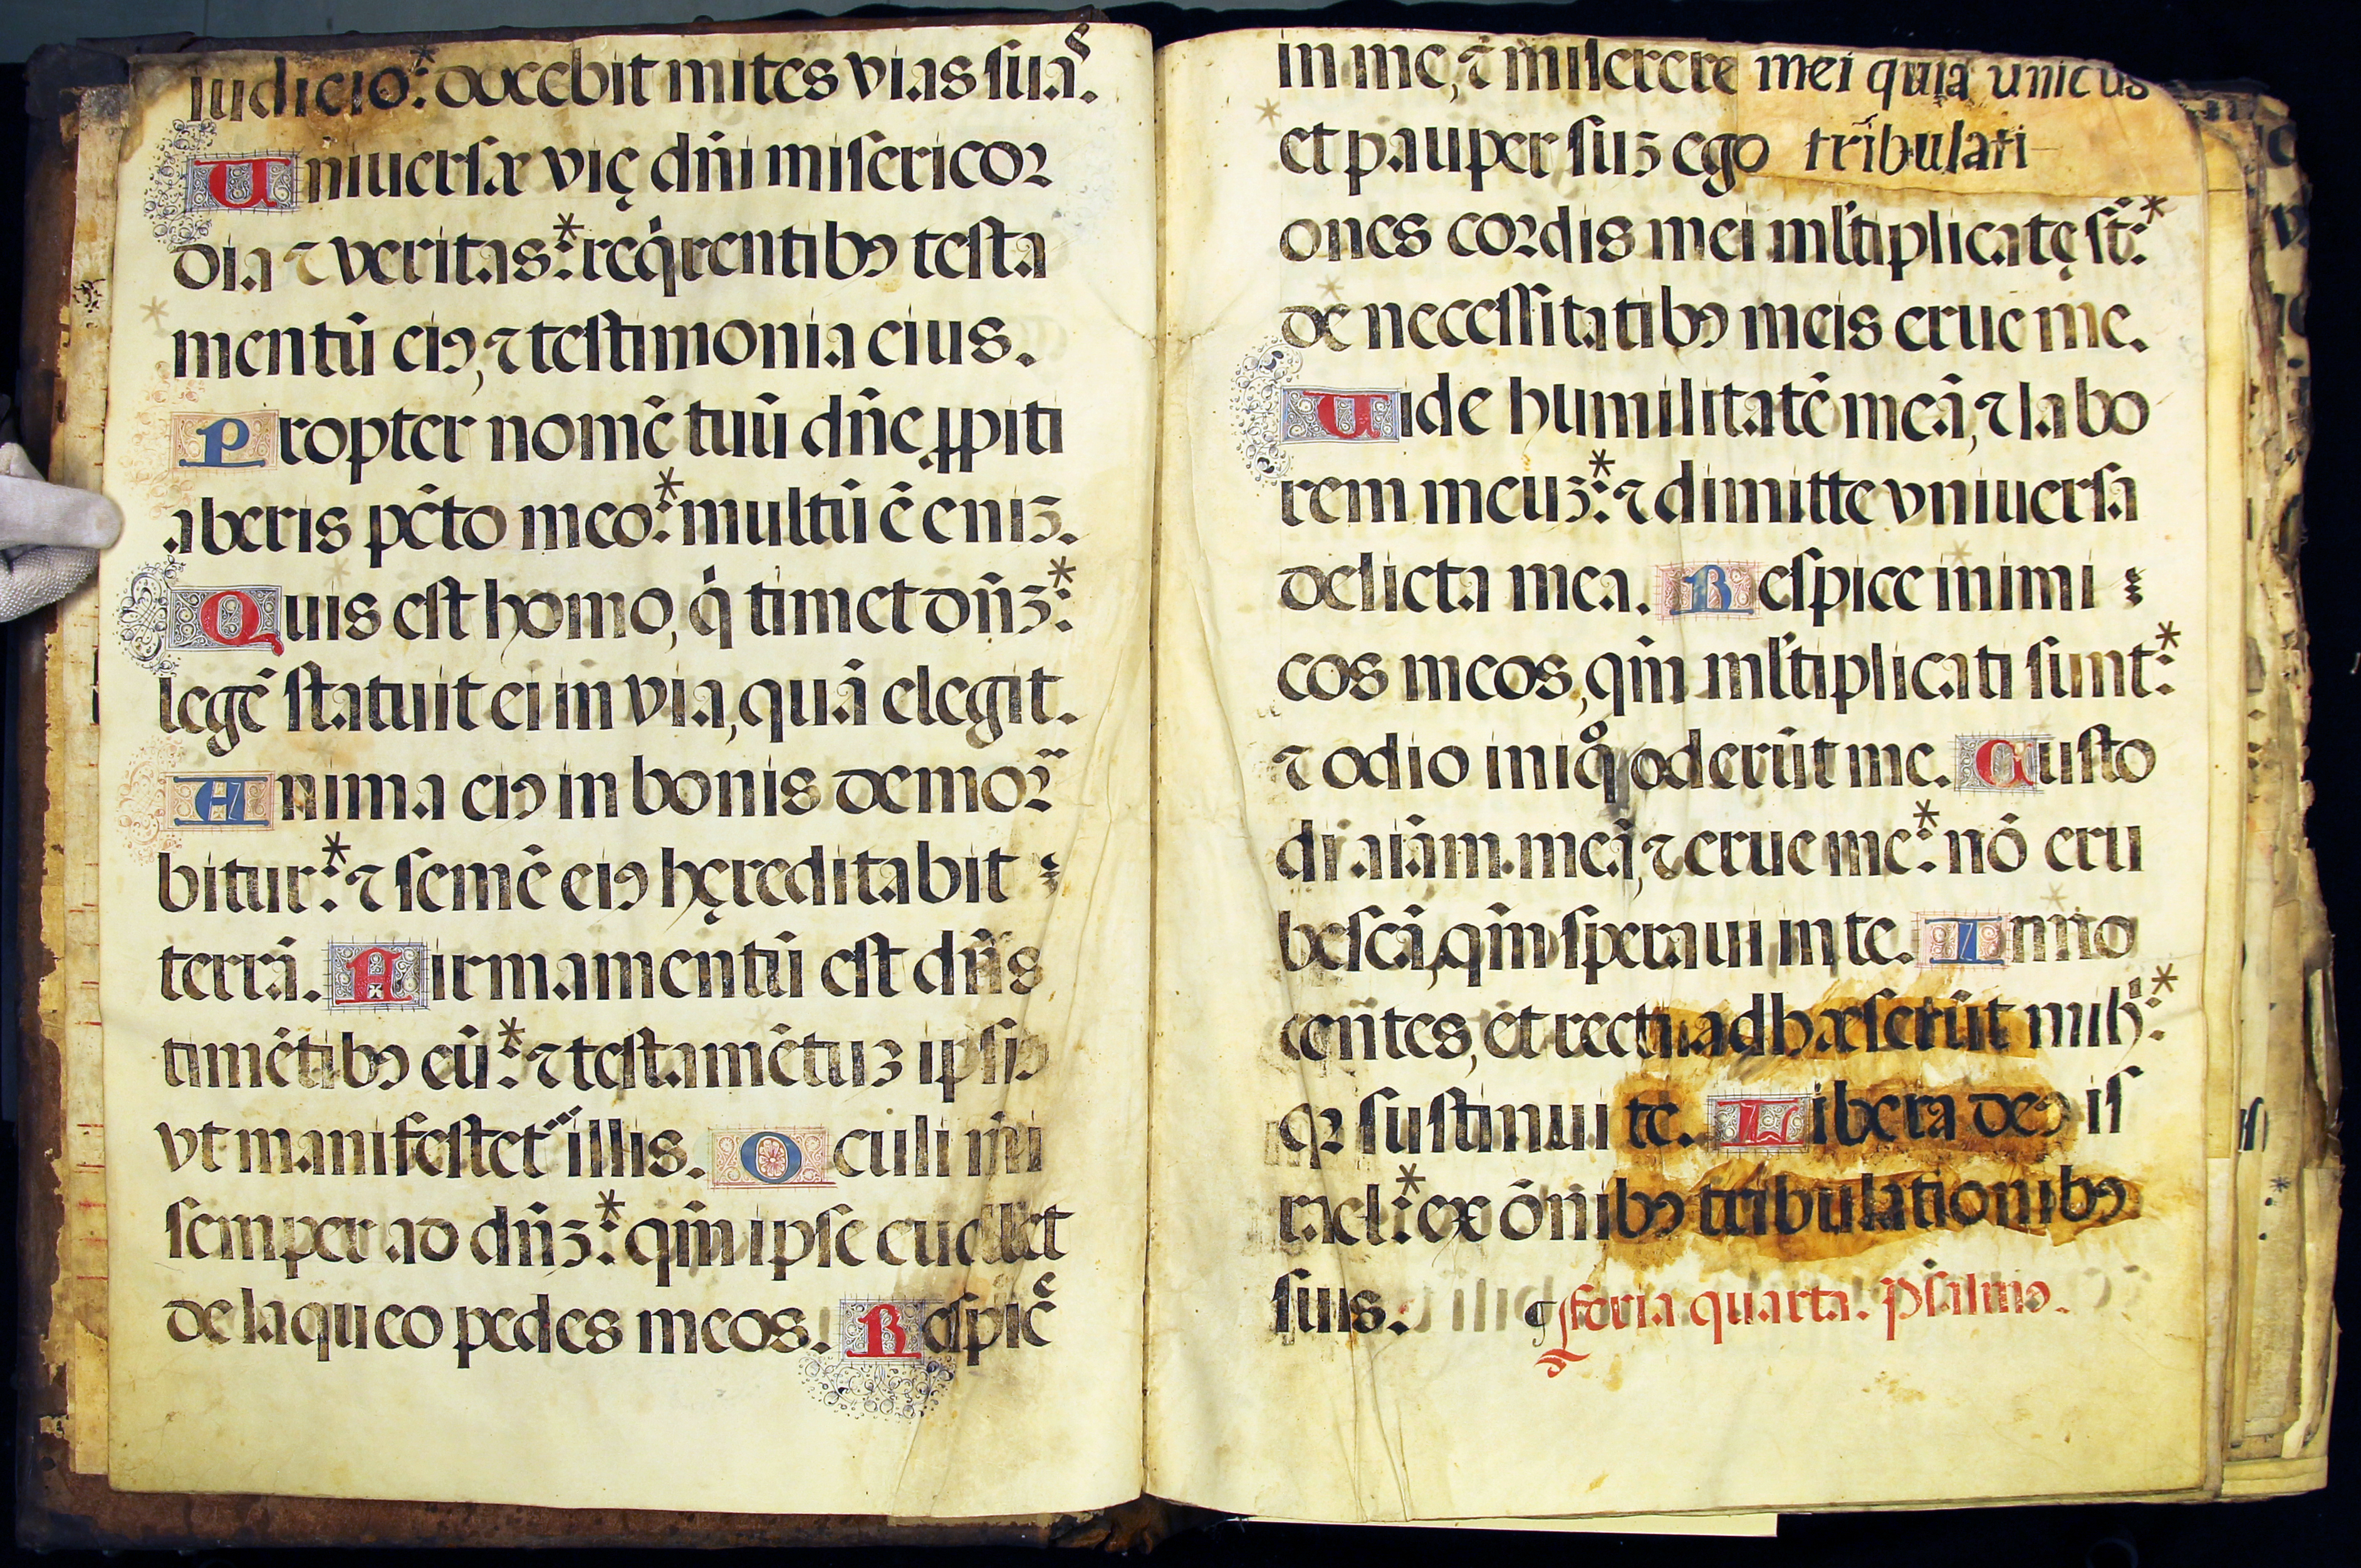 iudicio: * docebit mites vias suas.
Uniuersæ vię dñi misericor
dia ⁊ veritas: * reqͥrentibꝰ testa
mentū eiꝰ, ⁊ testimonia eius.
Propter nomē tuū dñe ꝓpiti
aberis pctō meo: * multū ē eniꝫ.
Quis est homo, qͥ timet dñꝫ: *
legē statuit ei in via, quā elegit.
Anima eiꝰ in bonis demor̃
bitur: * ⁊ semē eiꝰ hęreditabit
terrā. Firmamentū est dñs
timētibꝰ eū: * ⁊ testamētuꝫ ipsiꝰ
vt manifestet᷑ illis. Oculi mi
semper ad dñꝫ: * qm̄ ipse euellet
de laqueo pedes meos. Respicē
in me, ⁊ miserere mei quia unicus
et pauper suꝫ ego tribulati
ones cordis mei ml̃tiplicatę st̄: *
de necessitatibꝰ meis erue me.
Uide humilitatē meā, ⁊ labo
rem meuꝫ: * ⁊ dimitte vniuersa
delicta mea. Respice inimi
cos meos, qm̄ ml̃tiplicati sunt: *
⁊ odio iniqͦ oderūt me. Custo
di aīam meā, ⁊ erue me: * nō eru
bescā, qm̄ speraui in te. Inno
centes, et recti adhæserūt mihi: *
qꝛ sustinui te. Libera deꝰ is
rael: * ex ōnibꝰ tribulationibꝰ
suis. ¶ feria quarta. Psalmꝰ.